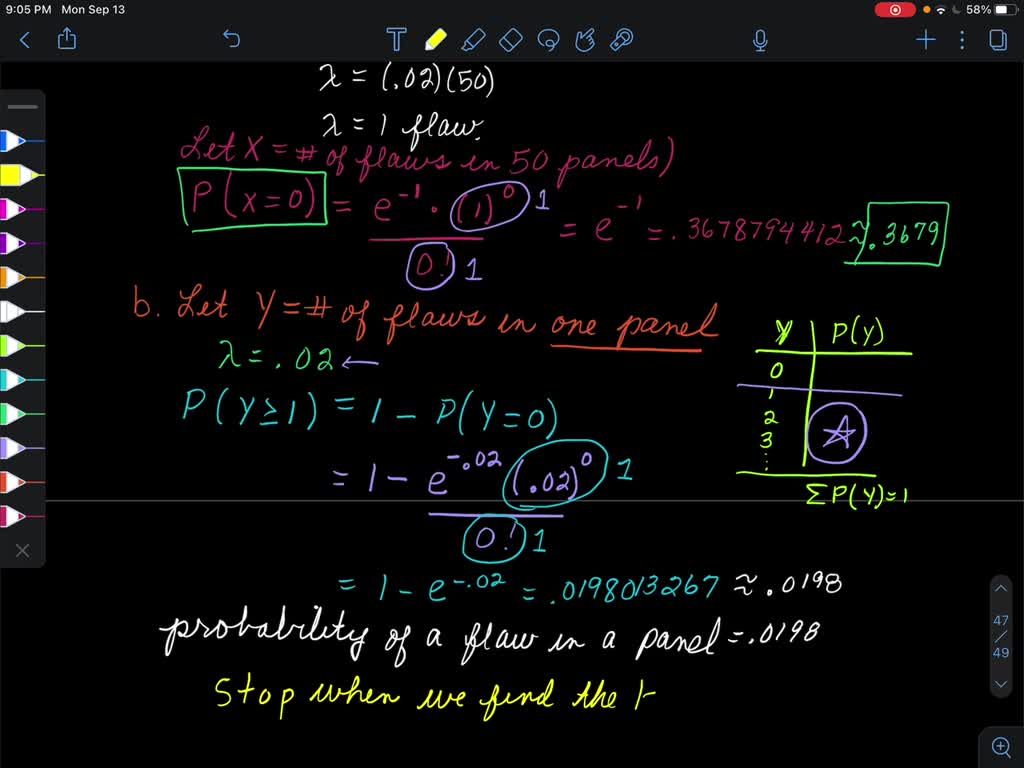 9:05 PM Mon Sep 13
58%
λ = (.02)(50)
λ = 1 flaw.
Let X = # of flaws in 50 panels)
P(X=0) = e^-1 · (1)^0 1 / 0! 1 = e^-1 = .3678794412 ≈ .3679
b. Let Y = # of flaws in one panel
λ = .02 ←
P(Y≥1) = 1 - P(Y=0)
= 1 - e^-.02 (.02)^0 1 / 0! 1
= 1 - e^-.02 = .0198013267 ≈ .0198
probability of a flaw in a panel = .0198
Stop when we find the
y P(Y)
0
1
2
3
⋮
ΣP(Y)=1
47
/
49